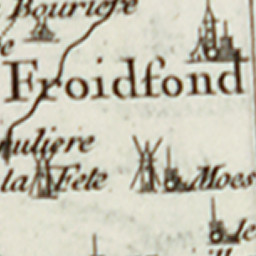 Bouriere
e
Froidfond
nuliere
la Fete
Moes
de